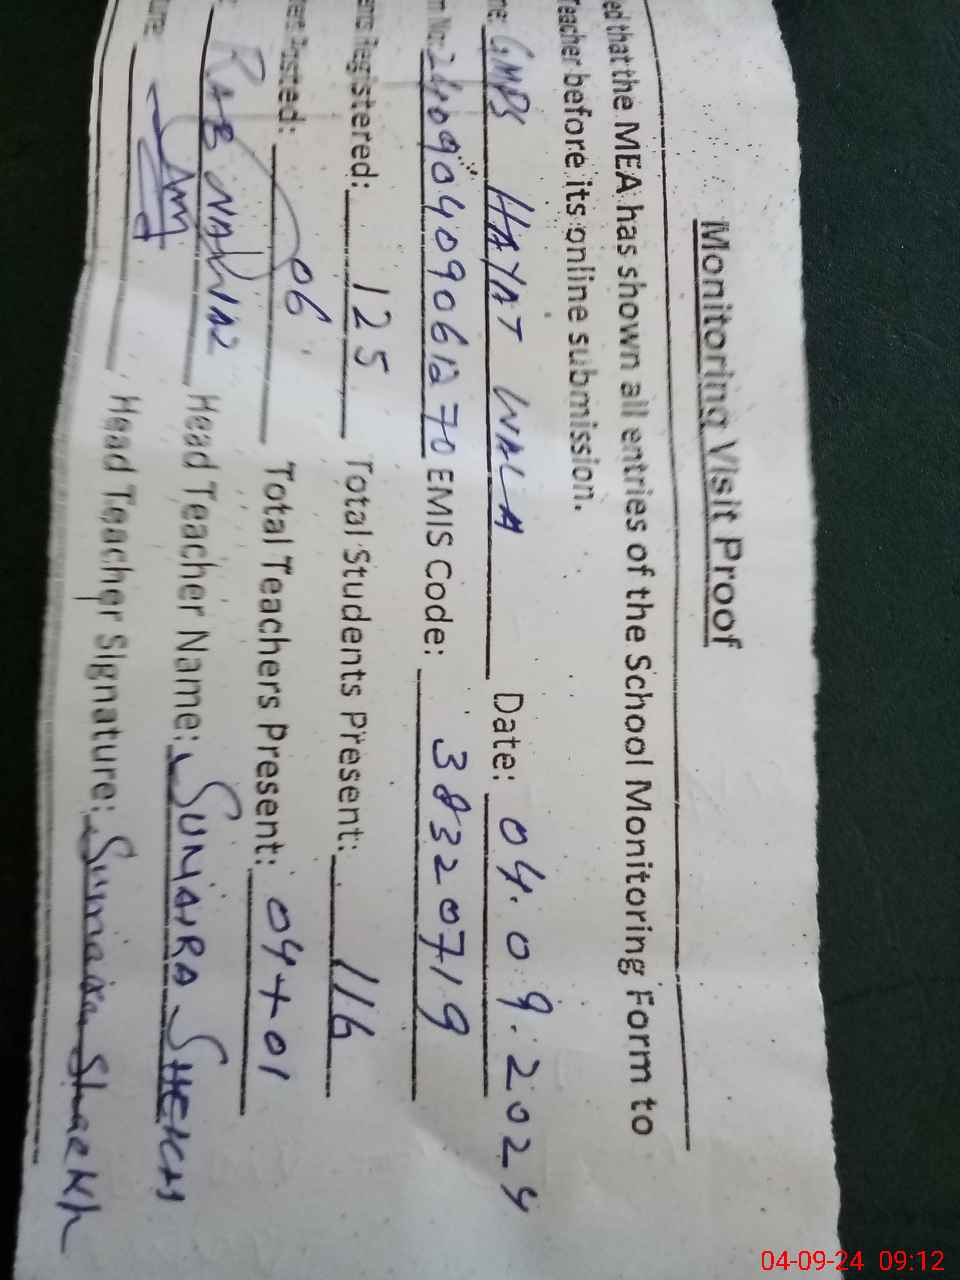 Monitoring Visit Proof
ed that the MEA has shown all entries of the School Monitoring Form to
Teacher before its online submission.
me: GMPS HAYAT WALA Date: 04.09.2024
n No: EMIS Code: 38320719
ents Registered: 125 Total Students Present: 116
Posted: 06 Total Teachers Present: 04+01
RAB NAWAZ Head Teacher Name: SUMAIRA SHEIKH
ure: Head Teacher Signature: Sumaira Shaekh
04-09-24 09:12